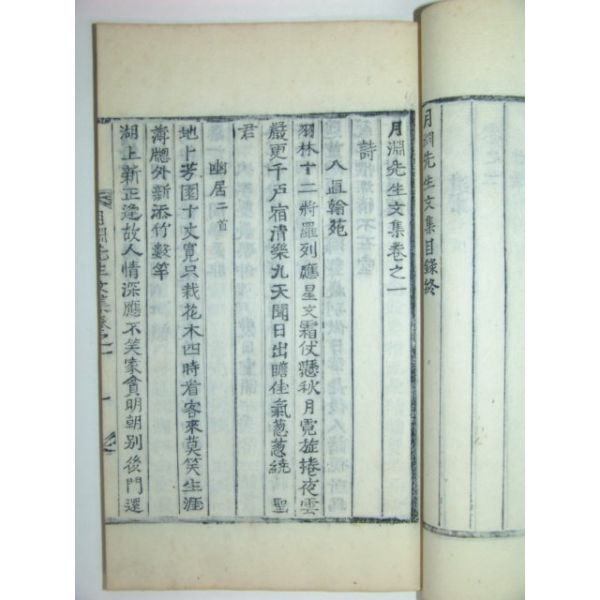 月淵先生文集目錄終
月淵先生文集卷之一
詩
入直翰苑
羽林十二將羅列應星文霜仗懸秋月霓旌捲夜雲
嚴更千戶宿清樂九天聞日出瞻佳氣葱葱繞 聖
君
幽居二首
地上芳園十丈寬只栽花木四時看客來莫笑生涯
薄牕外新添竹數竿
湖上新正逢故人情深應不笑家貧明朝別後門還
月淵先生文集卷之一 一